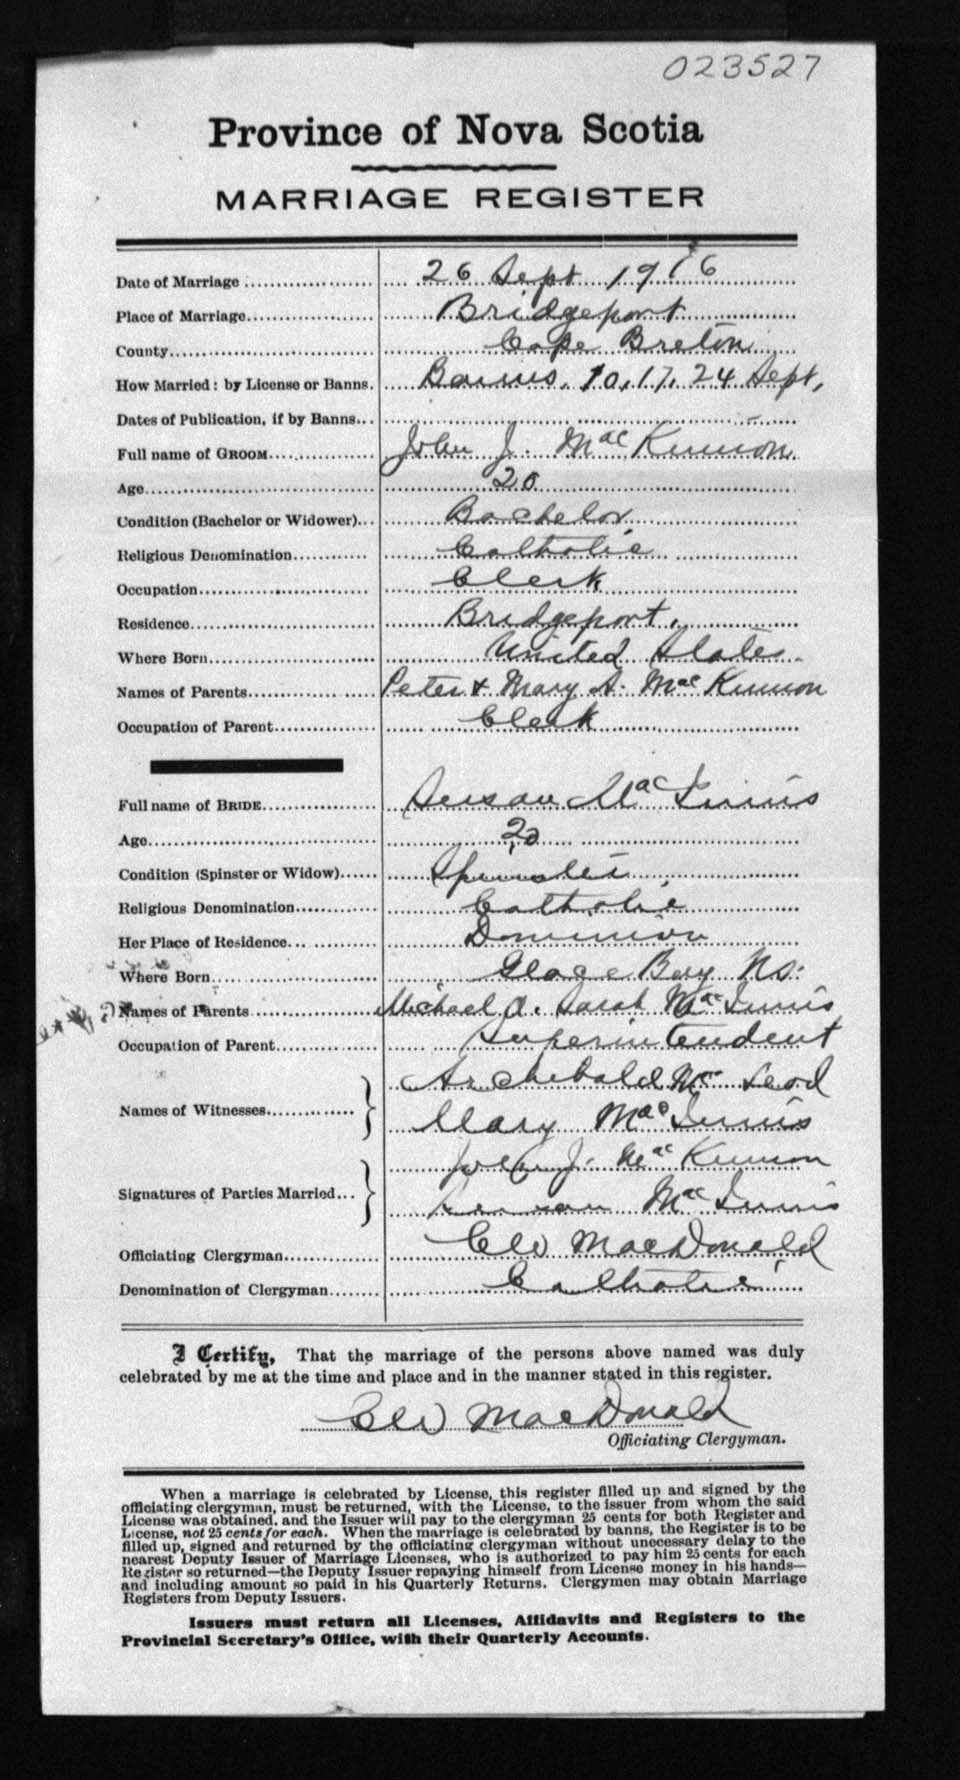 023527
Province of Nova Scotia
MARRIAGE REGISTER
Date of Marriage 26 Sept 1916
Place of Marriage Bridgeport
County Cape Breton
How Married: by License or Banns. Banns. 10, 17, 24 Sept,
Dates of Publication, if by Banns
Full name of GROOM John J. MacKinnon
Age 20
Condition (Bachelor or Widower) Bachelor
Religious Denomination Catholic
Occupation Clerk
Residence Bridgeport,
Where Born United States.
Names of Parents Peter & Mary A. MacKinnon
Occupation of Parent Clerk
Full name of BRIDE Susan MacInnis
Age 20
Condition (Spinster or Widow) Spinster
Religious Denomination Catholic
Her Place of Residence Dominion
Where Born Glace Bay Ns.
Names of Parents Michael A. Sarah MacInnis
Occupation of Parent Superintendent
Names of Witnesses Archibald Mc Leod
Mary MacInnis
Signatures of Parties Married John J. MacKinnon
Susan MacInnis
Officiating Clergyman CW MacDonald
Denomination of Clergyman Catholic
I Certify, That the marriage of the persons above named was duly
celebrated by me at the time and place and in the manner stated in this register.
CW MacDonald
Officiating Clergyman.
When a marriage is celebrated by License, this register filled up and signed by the
officiating clergyman, must be returned, with the License, to the issuer from whom the said
License was obtained, and the Issuer will pay to the clergyman 25 cents for both Register and
License, not 25 cents for each. When the marriage is celebrated by banns, the Register is to be
filled up, signed and returned by the officiating clergyman without unnecessary delay to the
nearest Deputy Issuer of Marriage Licenses, who is authorized to pay him 25 cents for each
Register so returned—the Deputy Issuer repaying himself from License money in his hands—
and including amount so paid in his Quarterly Returns. Clergymen may obtain Marriage
Registers from Deputy Issuers.
Issuers must return all Licenses, Affidavits and Registers to the
Provincial Secretary's Office, with their Quarterly Accounts.